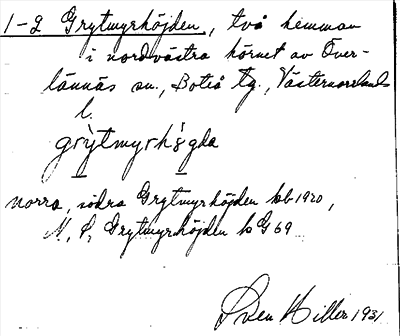 1-2 Grytmyrhöjden, två hemman
i nordvästra hörnet av Över-
lännäs sn., Boteå tg., Västernorrlands
l.
grỳtmyrhö̀gda
norra, södra Grytmyrhöjden bb 1920,
N, S, Grytmyrhöjden b G 69
Sven Hiller 1931